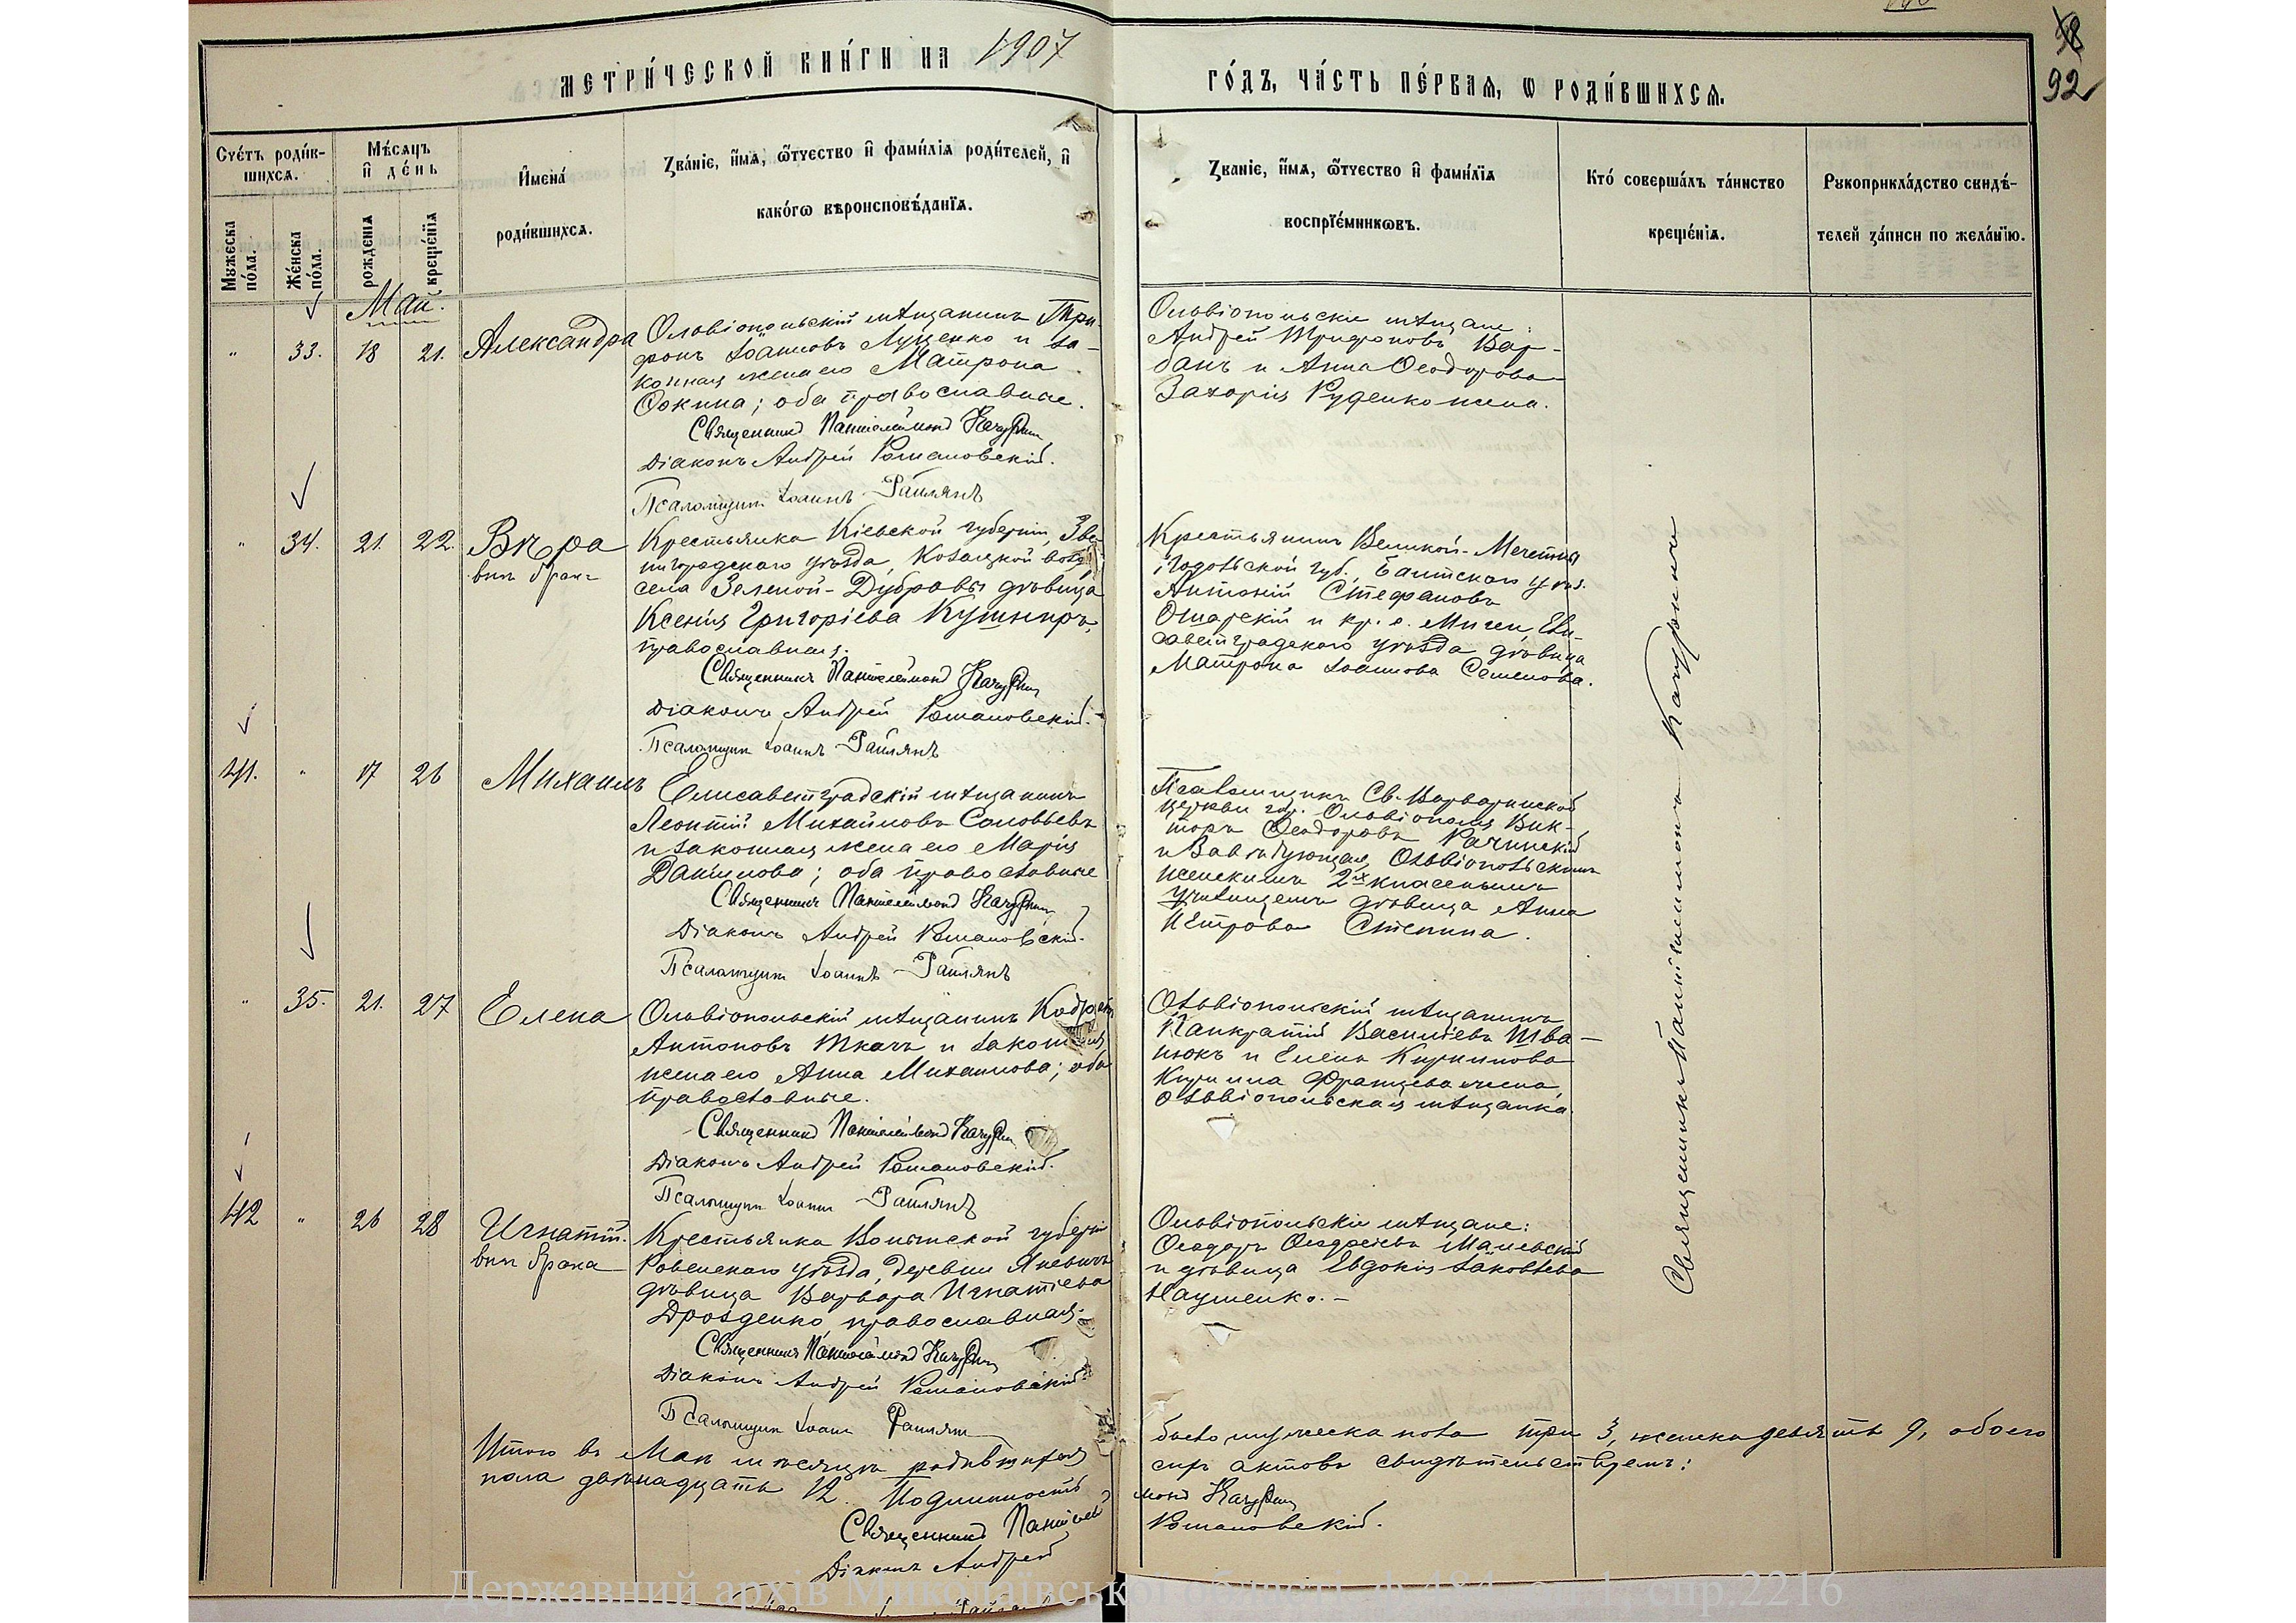 МЕТРИ́ЧЕСКОЙ КНИ́ГИ НА 1907
ГО́ДЪ, ЧА́СТЬ ПЕ́РВАѦ, Ѡ РОДИ́ВШИХСѦ.
92
Сче́тъ роди́в-
шихсѧ.
Мꙋжеска по́ла.
Же́нска по́ла.
Мѣ́сѧцъ и҆ де́нь
рожденїѧ
креще́нїѧ
И҆мена́
роди́вшихсѧ.
Ꙁва́нїе, и҆́мѧ, ѻ҆́тчество и҆ фами́лїѧ роди́телей, и҆
како́гѡ вѣроисповѣ́данїѧ.
Ꙁва́нїе, и҆́мѧ, ѻ҆́тчество и҆ фами́лїѧ
воспрїе́мникѡвъ.
Кто́ соверша́лъ та́инство
креще́нїѧ.
Рꙋкоприкла́дство свидѣ́-
телей за́писи по жела́нїю.
Май.
" 33. 18 21. Александра
Ольвіопольскій мѣщанинъ Три-
фонъ Іоанновъ Луценко и за-
конная жена его Матрона
Фокина; оба православные.
Священникъ Пантелеймонъ
Діаконъ Андрей Романовскій.
Псаломщик Іоаннъ Райлянъ
Ольвіопольскіе мѣщане:
Андрей Трифоновъ Вар-
банъ и Анна Ѳеодорова
Захарія Руденко жена.
" 34. 21. 22. Вѣра
внѣ брака
Крестьянка Кіевской губерніи, Зве-
нигородскаго уѣзда, Козацкой вол.
села Зеленой-Дубравы дѣвица
Ксенія Григоріева Кушниръ,
православная.
Священникъ Пантелеймонъ
Діаконъ Андрей Романовскій.
Псаломщик Іоаннъ Райлянъ
Крестьянинъ Великой-Мечетни
Подольской губ., Балтскаго уѣз.
Антоній Стефановъ
и кр. с. Мигеи, Ели-
саветградскаго уѣзда дѣвица
Матрона Іоаннова Семенова.
41. " 17 26 Михаилъ
Елисаветградскій мѣщанинъ
Леонтій Михайловъ Соловьевъ
и законная жена его Марія
Данилова; оба православные
Священникъ Пантелеймонъ
Діаконъ Андрей Романовскій.
Псаломщик Іоаннъ Райлянъ
Псаломщикъ Св.-Варваринской
церкви гор. Ольвіополя Вик-
торъ Ѳеодоровъ Рачинскій
и Завѣдующая Ольвіопольскимъ
женскимъ 2хъ класснымъ
училищемъ дѣвица Анна
Петрова Степина.
" 35. 21. 27 Елена
Ольвіопольскій мѣщанинъ Кодратъ
Антоновъ Ткачъ и законная
жена его Анна Михаилова; оба
православные.
Священникъ Пантелеймонъ
Діаконъ Андрей Романовскій.
Псаломщик Іоаннъ Райлянъ
Ольвіопольскій мѣщанинъ
Панкратій Василіевъ Шва-
нюкъ и Елена Кириллова
Кирилла Францева жена
Ольвіопольская мѣщанка.
42 " 26 28 Игнатій.
внѣ брака
Крестьянка Волынской губерніи
Ровенскаго уѣзда, деревни
дѣвица Варвара Игнатіева
Дрозденко, православная.
Священникъ Пантелеймонъ
Діаконъ Андрей Романовскій
Псаломщик Іоаннъ Райлянъ
Ольвіопольскіе мѣщане:
Ѳеодоръ Ѳеодосіевъ Малевскій
и дѣвица Евдокія Іаковлева
Науменко.-
Священникъ Пантелеймонъ
Итого въ Маѣ мѣсяцѣ родившихся
было мужеска пола три 3, женска девять 9, обоего
пола двѣнадцать 12. Подлинность
сихъ актовъ свидѣтельствуемъ:
Священникъ Пантелей
монъ
Діаконъ Андрей
Романовскій.
Державний архів Миколаївської області, ф.484, оп.1, спр.2216